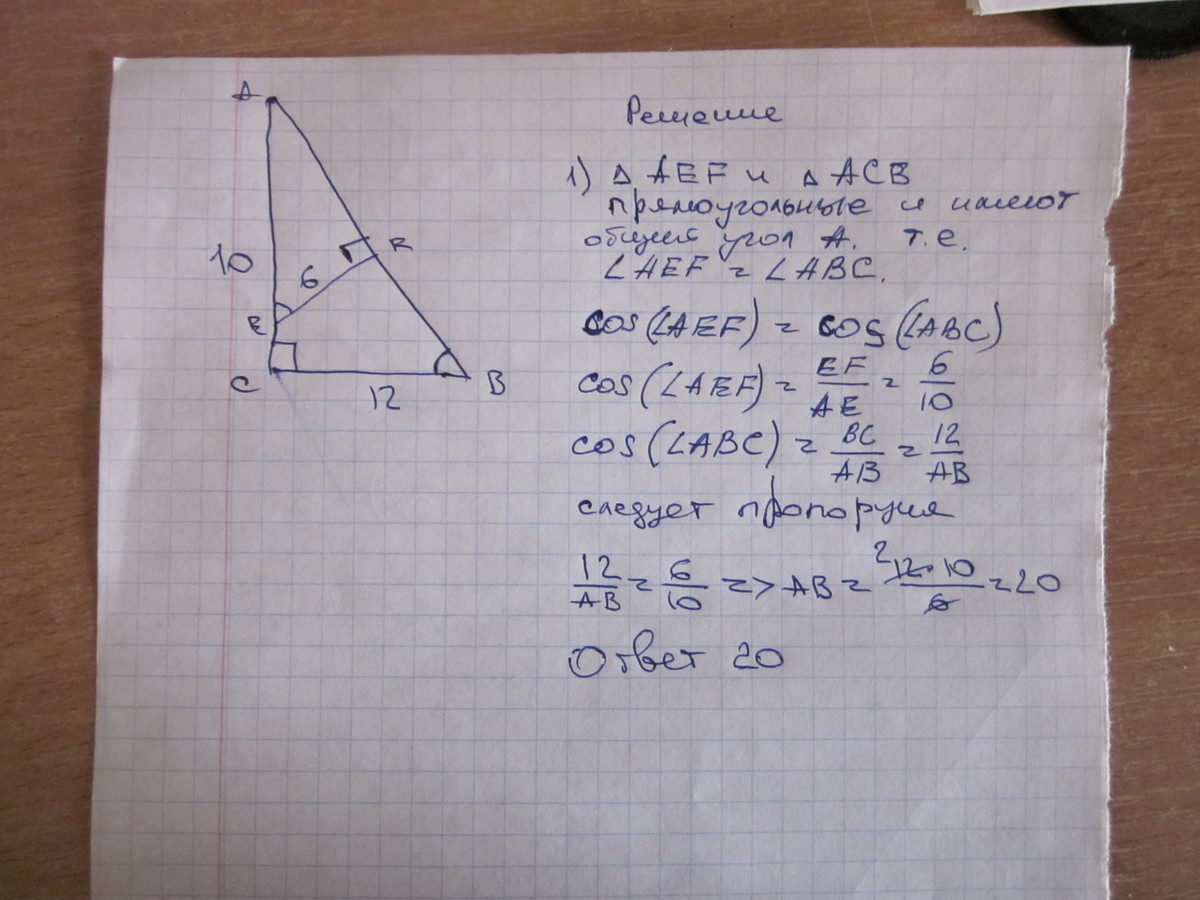 A
10
6
R
E
C
12
B
Решение
1) △ AEF и △ ACB
прямоугольные и имеют
общий угол A. т.е.
∠AEF = ∠ABC.
cos(∠AEF) = cos(∠ABC)
cos(∠AEF) = EF/AE = 6/10
cos(∠ABC) = BC/AB = 12/AB
следует пропорция
12/AB = 6/10 => AB = 2 12·10/6 = 20
Ответ 20